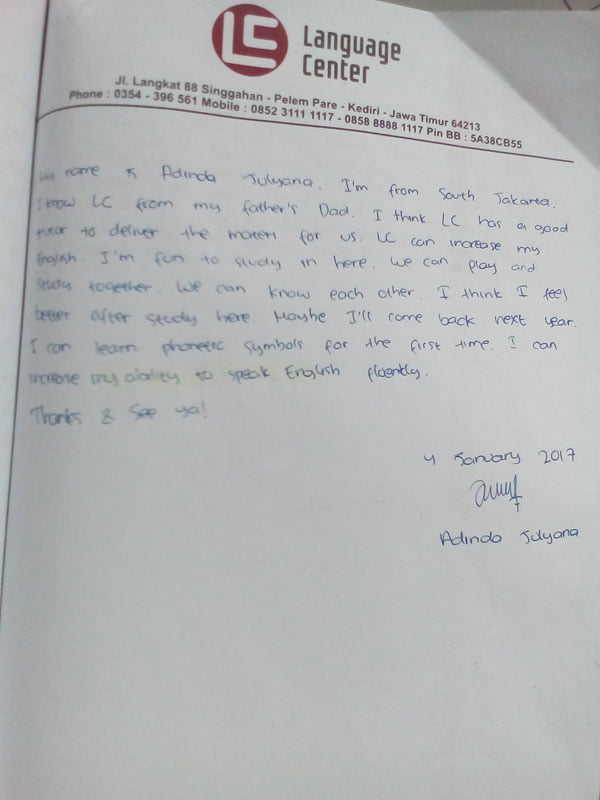 LC
Language
Center
Jl. Langkat 88 Singgahan - Pelem Pare - Kediri - Jawa Timur 64213
Phone : 0354 - 396 561 Mobile : 0852 3111 1117 - 0858 8888 1117 Pin BB : 5A38CB55
My name is Adinda Julyana. I'm from South Jakarta.
I know LC from my father's Dad. I think LC has a good
tutor to deliver the materi for us. LC can increase my
English. I'm fun to study in here. We can play and
study together. We can know each other. I think I feel
better after study here. Maybe I'll come back next year.
I can learn phonetic symbols for the first time. I can
increase my ability to speak English fluently.
Thanks & See ya!
4 January 2017
Adinda Julyana